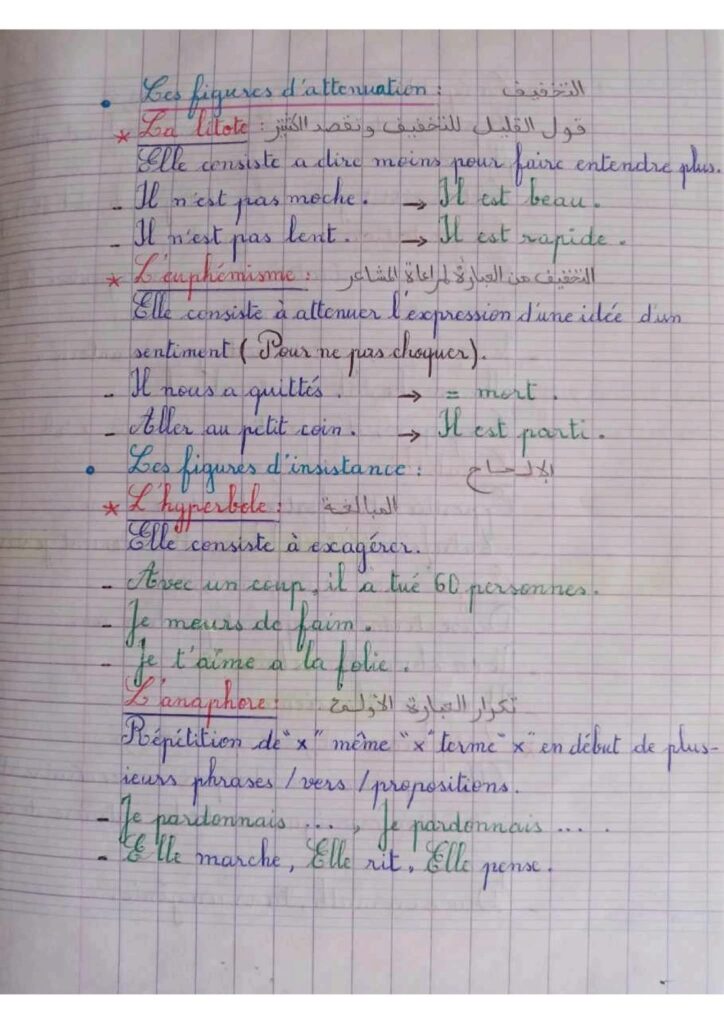 • Les figures d'attenuation : التخفيف
* La litote : قول القليل للتخفيف ونقصد الكثير
Elle consiste a dire moins pour faire entendre plus.
- Il n'est pas moche. → Il est beau.
- Il n'est pas lent. → Il est rapide.
* L'euphémisme : التخفيف من العبارة لمراعاة المشاعر
Elle consiste à attenuer l'expression d'une idée d'un
sentiment ( Pour ne pas choquer).
- Il nous a quittés. → = mort.
- Aller au petit coin. → Il est parti.
• Les figures d'insistance : الإلحاح
* L'hyperbole : المبالغة
Elle consiste à exagérer.
- Avec un coup, il a tué 60 personnes.
- Je meurs de faim.
- Je t'aïme a la folie.
L'anaphore : تكرار العبارة الأولى.
Répétition de "x" même "x" terme "x" en début de plus-
ieurs phrases / vers / propositions.
- Je pardonnais ..., Je pardonnais ....
- Elle marche, Elle rit, Elle pense.